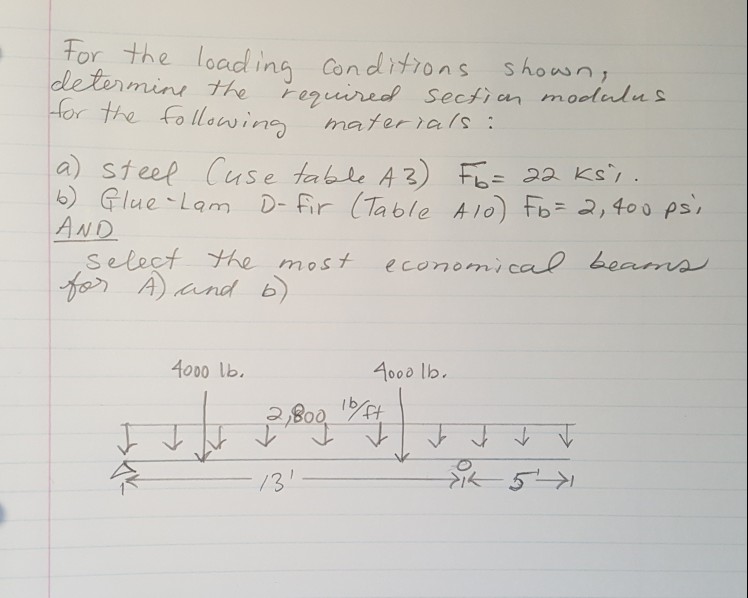 For the loading conditions shown,
determine the required section modulus
for the following materials:
a) steel (use table A3) Fb = 22 Ksi.
b) Glue-Lam D-Fir (Table A10) Fb = 2,400 psi,
AND
Select the most economical beams
for A) and b)
4000 lb. 4000 lb.
2,800 lb/ft
13' 5'